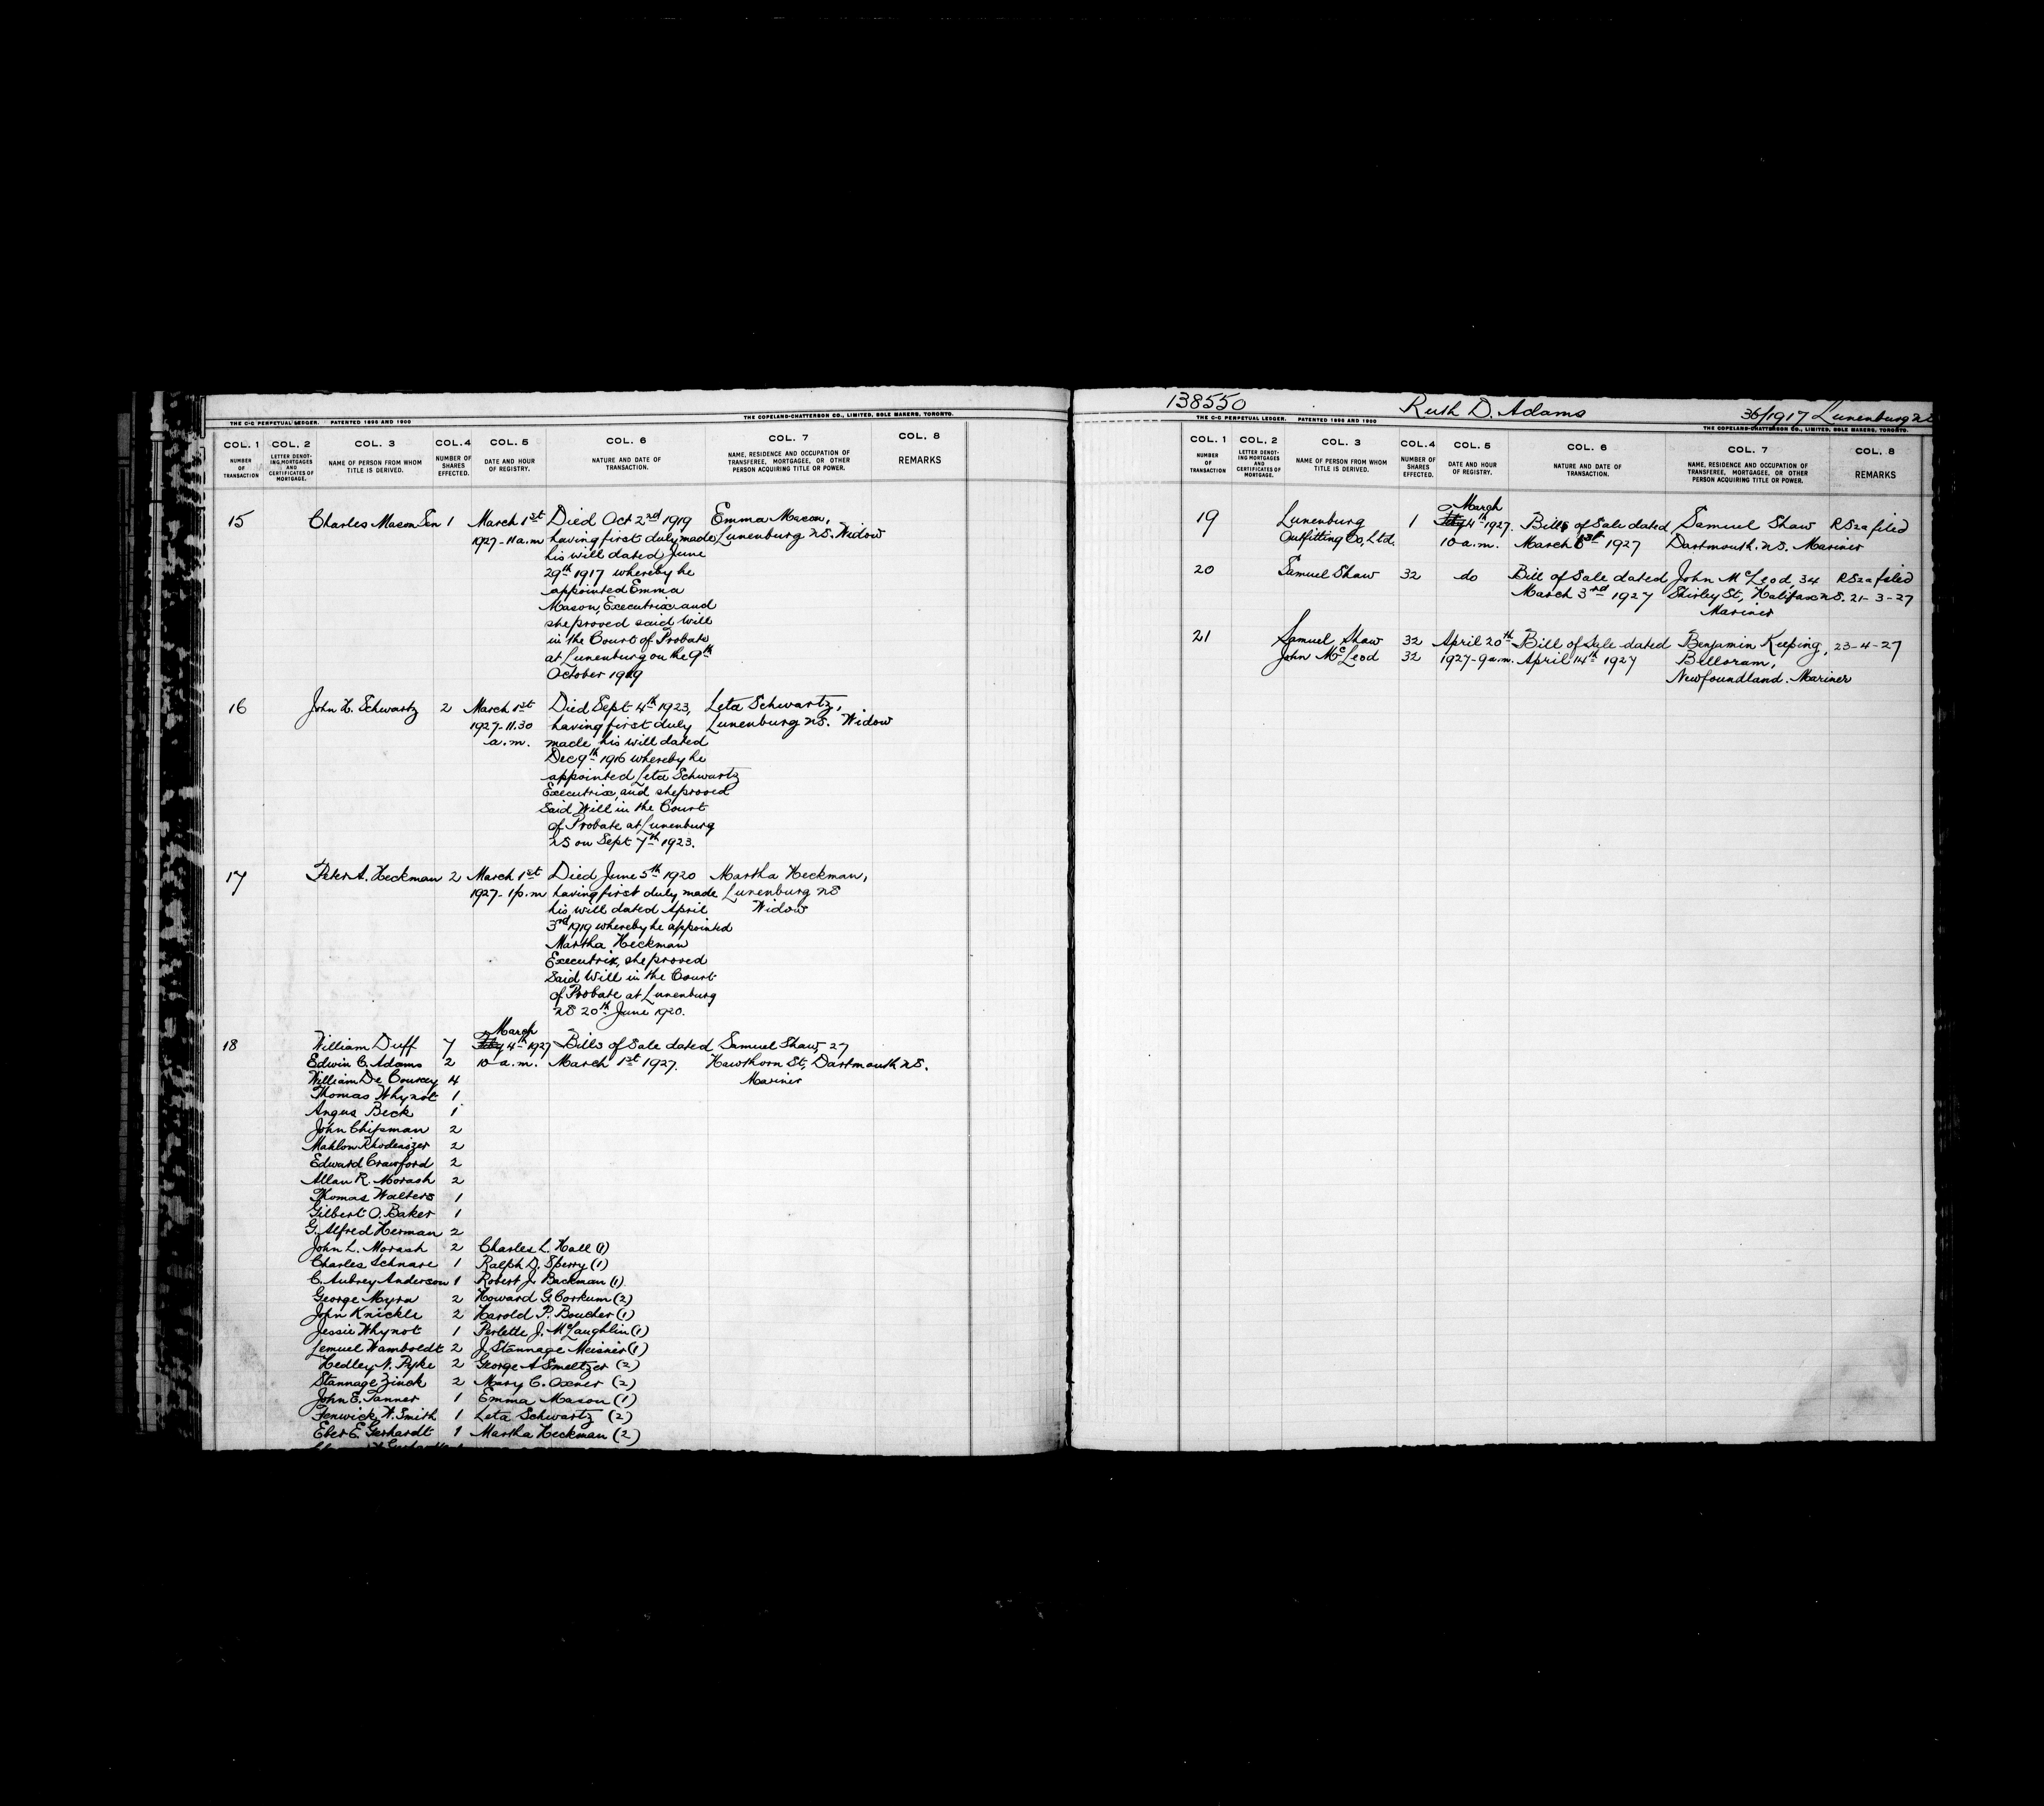 THE C-C PERPETUAL LEDGER. PATENTED 1896 AND 1900
THE COPELAND-CHATTERSON CO., LIMITED, SOLE MAKERS, TORONTO.
COL. 1 COL. 2 COL. 3 COL. 4 COL. 5 COL. 6 COL. 7 COL. 8
NUMBER OF TRANSACTION
LETTER DENOTING MORTGAGES AND CERTIFICATES OF MORTGAGE.
NAME OF PERSON FROM WHOM TITLE IS DERIVED.
NUMBER OF SHARES EFFECTED.
DATE AND HOUR OF REGISTRY.
NATURE AND DATE OF TRANSACTION.
NAME, RESIDENCE AND OCCUPATION OF TRANSFEREE, MORTGAGEE, OR OTHER PERSON ACQUIRING TITLE OR POWER.
REMARKS
15 Charles Mason Sen 1 March 1st Died Oct 2nd 1919 Emma Mason,
1927-11 a.m having first duly made Lunenburg N.S. Widow
his will dated June
29th 1917 whereby he
appointed Emma
Mason, Executrix and
she proved said will
in the Court of Probate
at Lunenburg on the 9th
October 1919
16 John H. Schwartz 2 March 1st Died Sept 4th 1923, Leta Schwartz,
1927-11.30 having first duly Lunenburg N.S. Widow
a.m. made his will dated
Dec 9th 1916 whereby he
appointed Leta Schwartz
Executrix, and she proved
Said Will in the Court
of Probate at Lunenburg
NS on Sept 7th 1923.
17 Peter A. Heckman 2 March 1st Died June 5th 1920 Martha Heckman,
1927-1p.m having first duly made Lunenburg NS
his will dated April Widow
3rd 1919 whereby he appointed
Martha Heckman
Executrix, she proved
Said Will in the Court
of Probate at Lunenburg
NS 20th June 1920.
March
18 William Duff 7 Feby 4th 1927 Bills of Sale dated Samuel Shaw, 27
Edwin C. Adams 2 10 a.m. March 1st 1927. Hawthorn St, Dartmouth N.S.
William De Courcey 4 Mariner
Thomas Whynot 1
Angus Beck 1
John Chipman 2
Mahlon Rhodenizer 2
Edward Crawford 2
Allan R. Morash 2
Thomas Walters 1
Gilbert O. Baker 1
G. Alfred Herman 2
John L. Morash 2 Charles L. Hall (1)
Charles Schnare 1 Ralph D. Sperry (1)
C. Aubrey Anderson 1 Robert J. Backman (1)
George Myra 2 Howard G. Corkum (2)
John Knickle 2 Harold P. Boucher (1)
Jessie Whynot 1 Perlette J. McLaughlin (1)
Lemuel Wamboldt 2 J. Stannage Meisner (1)
Hedley N. Pyke 2 George A Smeltzer (2)
Stannage Zinck 2 Mary C. Oxner (2)
John E. Tanner 1 Emma Mason (1)
Fenwick W. Smith 1 Leta Schwartz (2)
Eber E. Gerhardt 1 Martha Heckman (2)
138550 Ruth D. Adams 36/1917 Lunenburg N.S
THE C-C PERPETUAL LEDGER. PATENTED 1896 AND 1900
THE COPELAND-CHATTERSON CO., LIMITED, SOLE MAKERS, TORONTO.
COL. 1 COL. 2 COL. 3 COL. 4 COL. 5 COL. 6 COL. 7 COL. 8
NUMBER OF TRANSACTION
LETTER DENOTING MORTGAGES AND CERTIFICATES OF MORTGAGE.
NAME OF PERSON FROM WHOM TITLE IS DERIVED.
NUMBER OF SHARES EFFECTED.
DATE AND HOUR OF REGISTRY.
NATURE AND DATE OF TRANSACTION.
NAME, RESIDENCE AND OCCUPATION OF TRANSFEREE, MORTGAGEE, OR OTHER PERSON ACQUIRING TITLE OR POWER.
REMARKS
March
19 Lunenburg 1 Feby 4th 1927. Bills of Sale dated Samuel Shaw RS2a filed
Outfitting Co, Ltd. 10 a.m. March 1st 1927 Dartmouth. N.S. Mariner
20 Samuel Shaw 32 do Bill of Sale dated John McLeod, 34 RS2a filed
March 3rd 1927 Shirley St, Halifax N.S. 21-3-27
Mariner
21 Samuel Shaw 32 April 20th Bill of Sale dated Benjamin Keeping, 23-4-27
John McLeod 32 1927-9 a.m. April 14th 1927 Belloram,
Newfoundland. Mariner